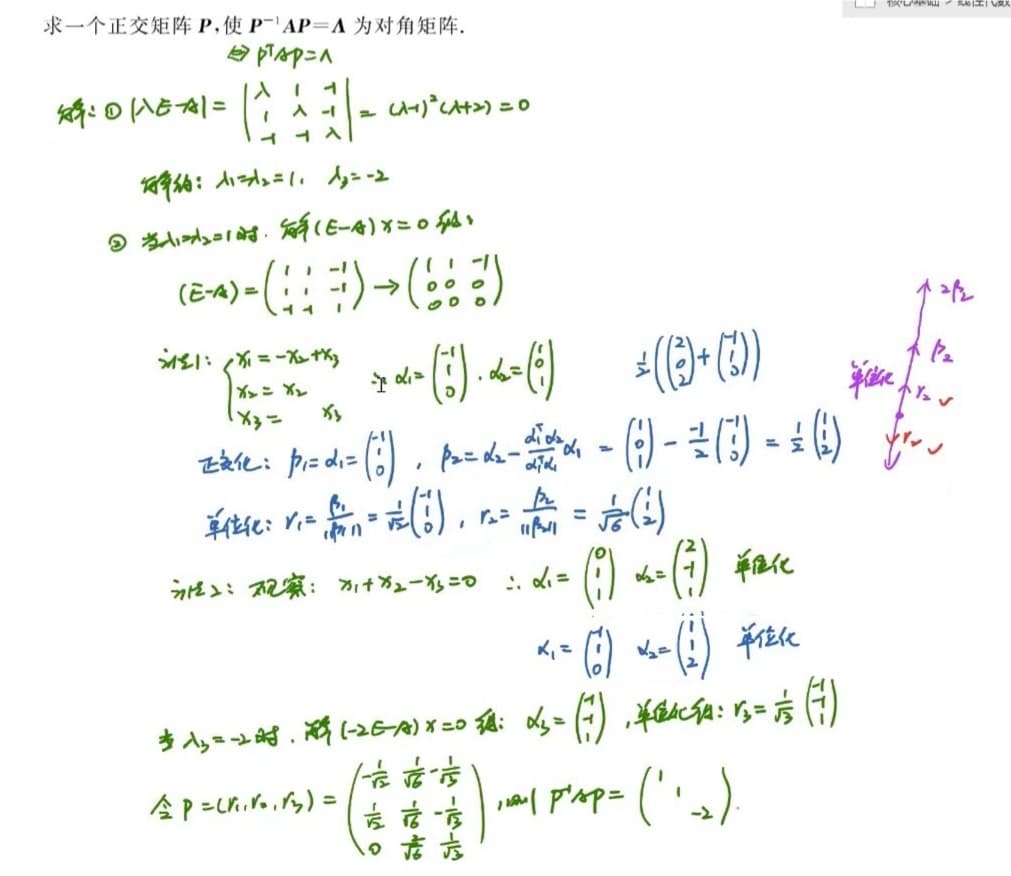 求一个正交矩阵 P,使 P⁻¹AP=Λ 为对角矩阵.
⇔ PᵀAP=Λ
解: ① |λE-A| = |λ 1 -1; 1 λ -1; -1 -1 λ| = (λ-1)²(λ+2) = 0
解得: λ₁=λ₂=1, λ₃=-2
② 当λ₁=λ₂=1时, 解(E-A)x=0 得:
(E-A) = (1 1 -1; 1 1 -1; -1 -1 1) → (1 1 -1; 0 0 0; 0 0 0)
方法1: {x₁=-x₂+x₃; x₂=x₂; x₃= x₃ ∴ α₁=(-1; 1; 0), α₂=(1; 0; 1) ½((2; 0; 2)+(-1; 1; 0))
正交化: β₁=α₁=(-1; 1; 0), β₂=α₂-(α₁ᵀα₂/α₁ᵀα₁)α₁ = (1; 0; 1) - (-1/2)(-1; 1; 0) = ½(1; 1; 2)
单位化: r₁=β₁/||β₁||=1/√2(-1; 1; 0), r₂=β₂/||β₂|| = 1/√6(1; 1; 2)
2β₂
β₂
单位化
r₂ ✓
r₂ ✓
方法2: 观察: x₁+x₂-x₃=0 ∴ α₁=(0; 1; 1) α₂=(2; -1; 1) 单位化
α₁=(-1; 1; 0) α₂=(1; 1; 2) 单位化
当 λ₃=-2时, 解(-2E-A)x=0 得: α₃=(-1; -1; 1), 单位化得: r₃=1/√3(-1; -1; 1)
令 P=(r₁,r₂,r₃) = (-1/√2 1/√6 -1/√3; 1/√2 1/√6 -1/√3; 0 2/√6 1/√3), 则 P⁻¹AP=(1 1 -2).